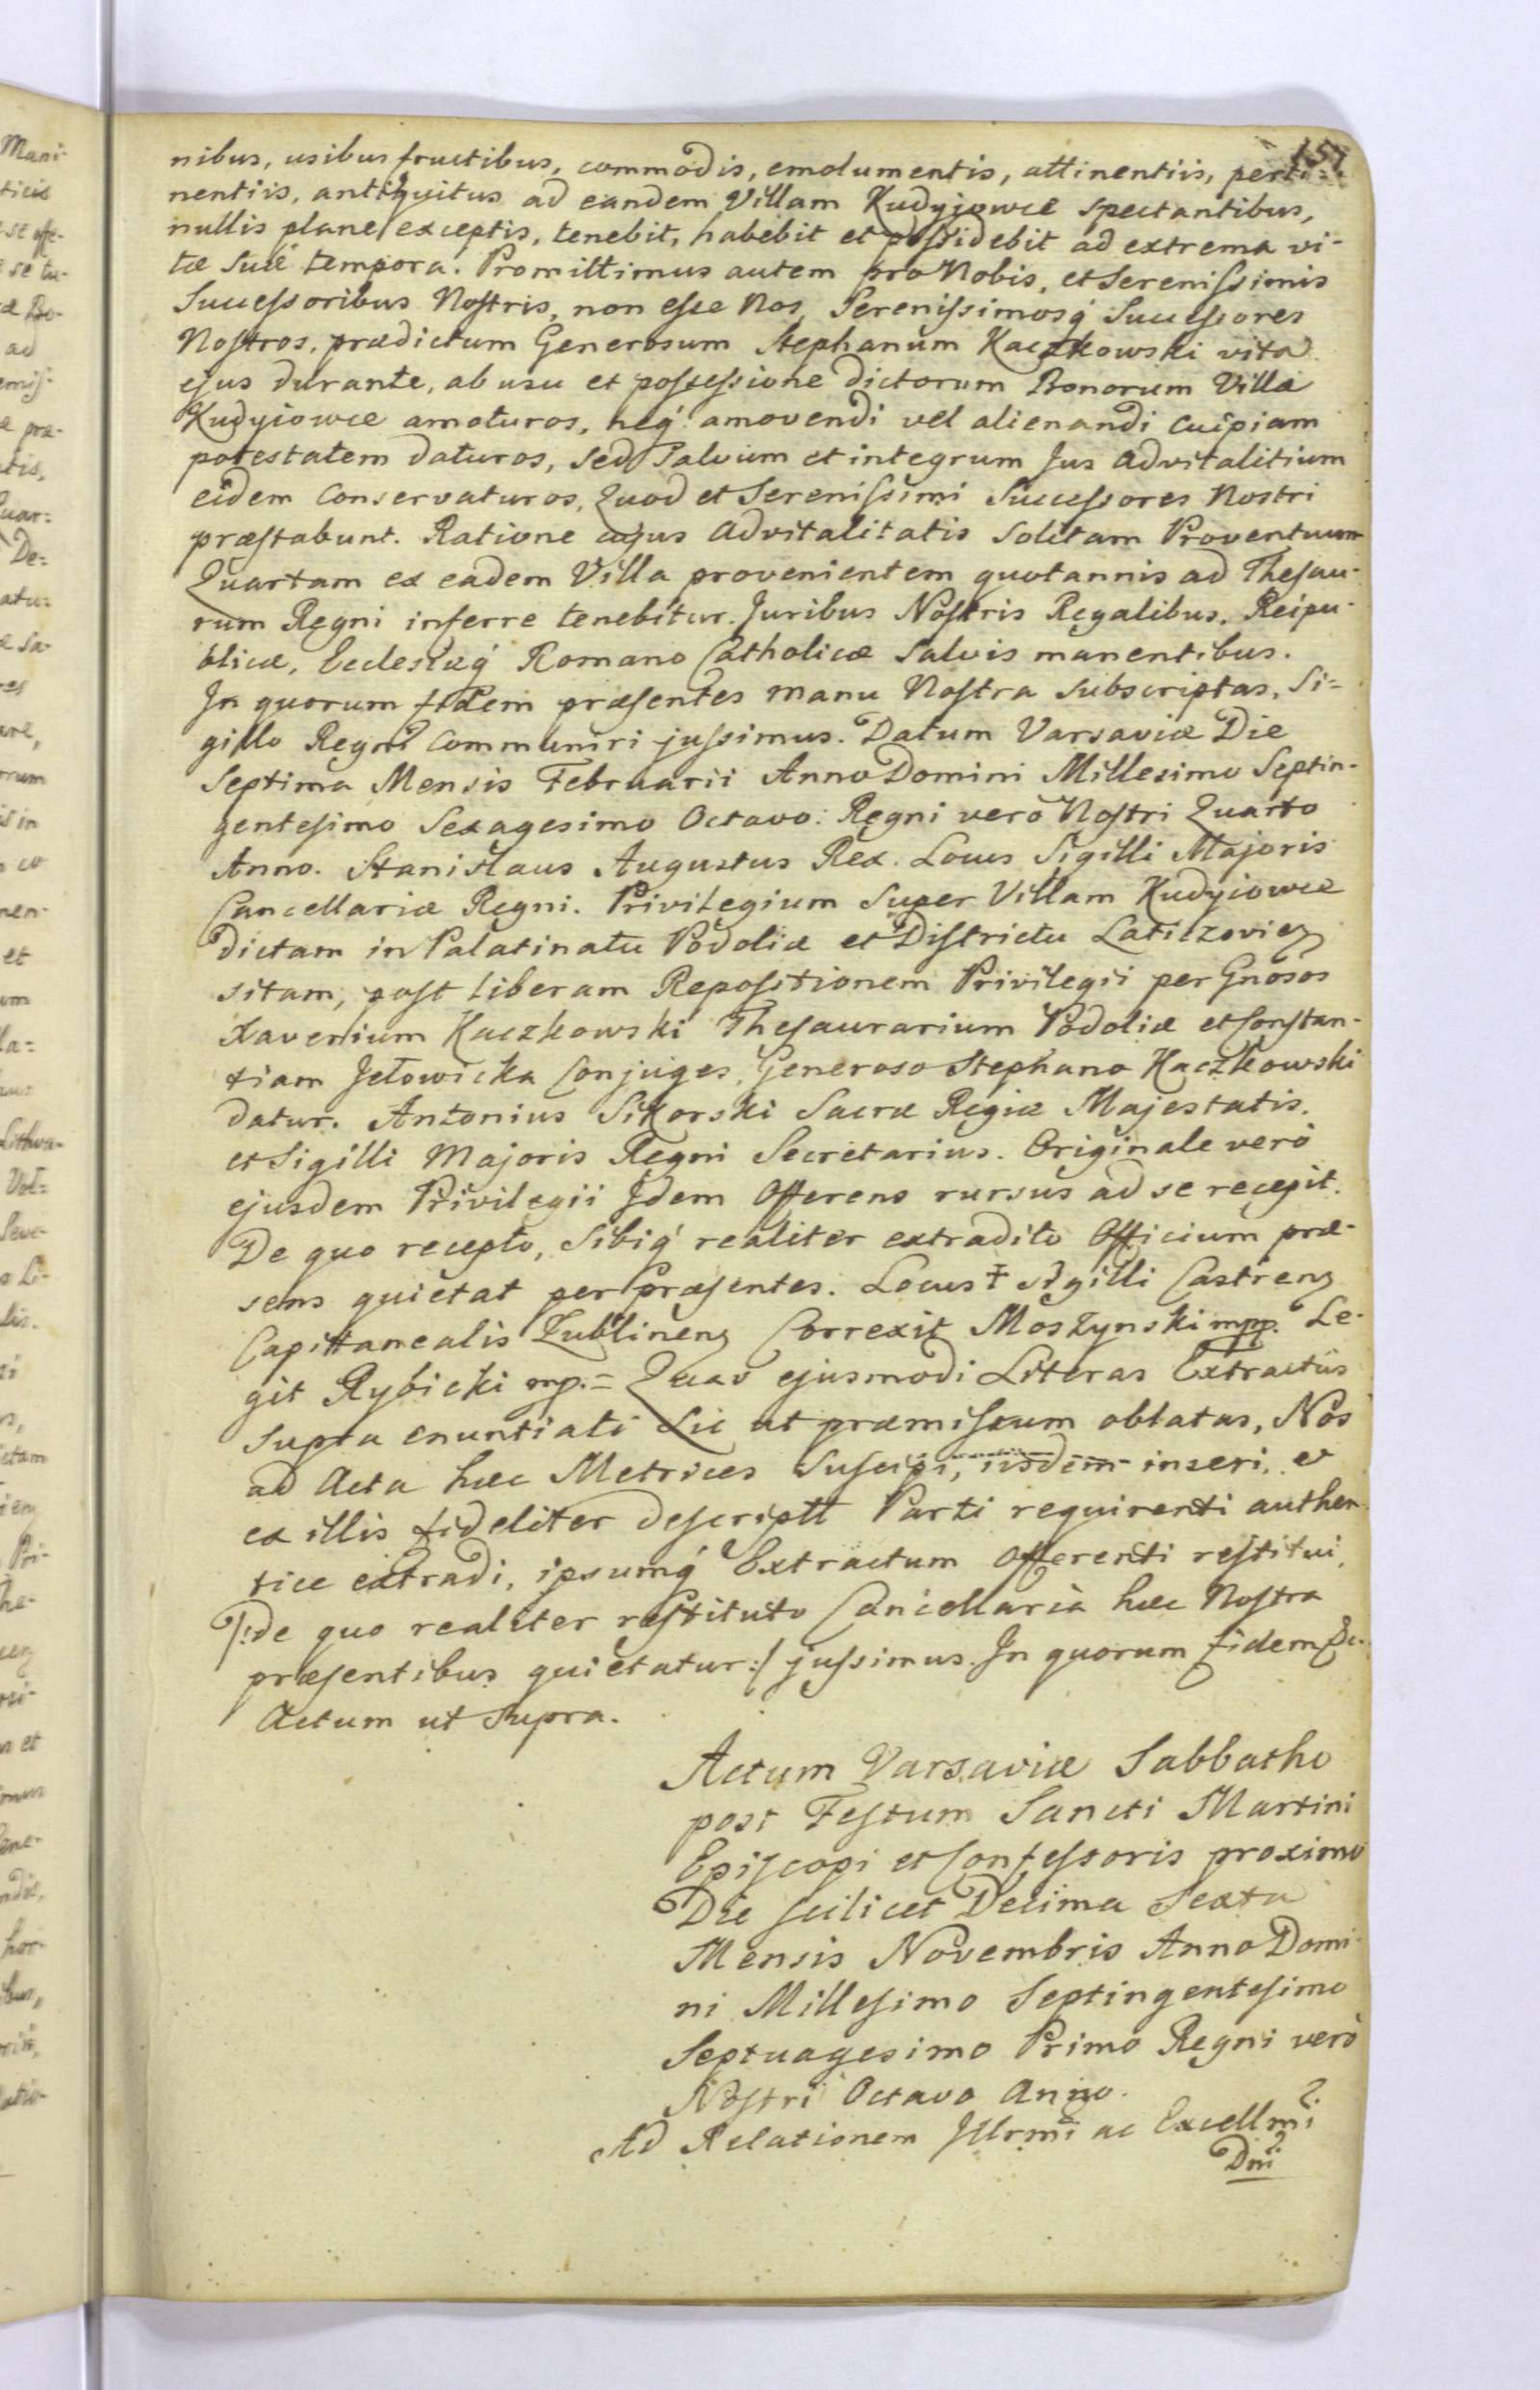 151
nibus, usibus fructibus, commodis, emolumentis, attinentiis, perti-
nentiis, antiquitus ad eandem Villam Kudyjowce spectantibus,
nullis plane exceptis, tenebit, habebit et possidebit ad extrema vi-
tæ suæ tempora. Promittimus autem pro Nobis, et Serenissimis
Successoribus Nostris, non esse Nos, Serenissimosq́ Successores
Nostros, prædictum Generosum Stephanum Kaczkowski vita
ejus durante, ab usu et possessione dictorum Bonorum Villæ
Kudyiowce amoturos, neq́ amovendi vel alienandi cuipiam
potestatem daturos, sed Salvum et integrum Jus advitalitium
eidem Conservaturos, Quod et Serenissimi Successores Nostri
præstabunt. Ratione cujus advitalitatis Solitam Proventuum
Quartam ex eadem Villa provenientem quotannis ad Thesau-
rum Regni inferre tenebitur. Juribus Nostris Regalibus, Reipu-
blicæ, Ecclesiæq́ Romano Catholicæ Salvis manentibus.
In quorum fidem præsentes manu Nostra Subscriptas, Si=
gillo Regni Communiri jussimus. Datum Varsaviæ Die
Septima Mensis Februarii Anno Domini Millesimo Septin-
gentesimo Sexagesimo Octavo. Regni verò Nostri Quarto
Anno. Stanislaus Augustus Rex. Locus Sigilli Majoris
Cancellariæ Regni. Privilegium Super Villam Kudyiowce
dictam in Palatinatu Podoliæ et Districtu Laticzoviez
sitam, post liberam Repositionem Privilegii per Gnosos
Xaverium Kaczkowski Thesaurarium Podoliæ et Constan-
tiam Jełowicka Conjuges, Generoso Stephano Kaczkowski
datur. Antonius Sikorski Sacræ Regiæ Majestatis,
et Sigilli Majoris Regni Secretarius. Originale verò
ejusdem Privilegii Idem Offerens rursus ad se recepit.
De quo recepto, sibiq́ realiter extradito Officium præ-
sens quietat per Præsentes. Locus ‡ Sigilli Castrenz
Capittanealis Lublinenz Correxit Moszynski mpp. Le-
git Rybicki mp. = Quas ejusmodi Literas Extractûs
supra enuntiati Sic ut præmissum oblatas, Nos
ad Acta hæc Metrices Suscipi, iisdem inseri, et
ex illis fideliter descriptt Parti requirenti authen-
tice extradi, ipsumq́ Extractum Offerenti restitui,
/:de quo realiter restituto Cancellaria hæc Nostra
præsentibus quietatur:/ jussimus. In quorum fidem &c.
Actum ut Supra.
Actum Varsaviæ Sabbatho
post Festum Sancti Martini
Episcopi et Confessoris proximo
Die scilicet Decima Sexta
Mensis Novembris Anno Domi-
ni Millesimo Septingentesimo
Septuagesimo Primo Regni verò
Nostri Octavo Anno.
Ad Relationem Illrmi ac Excellmi
Dni